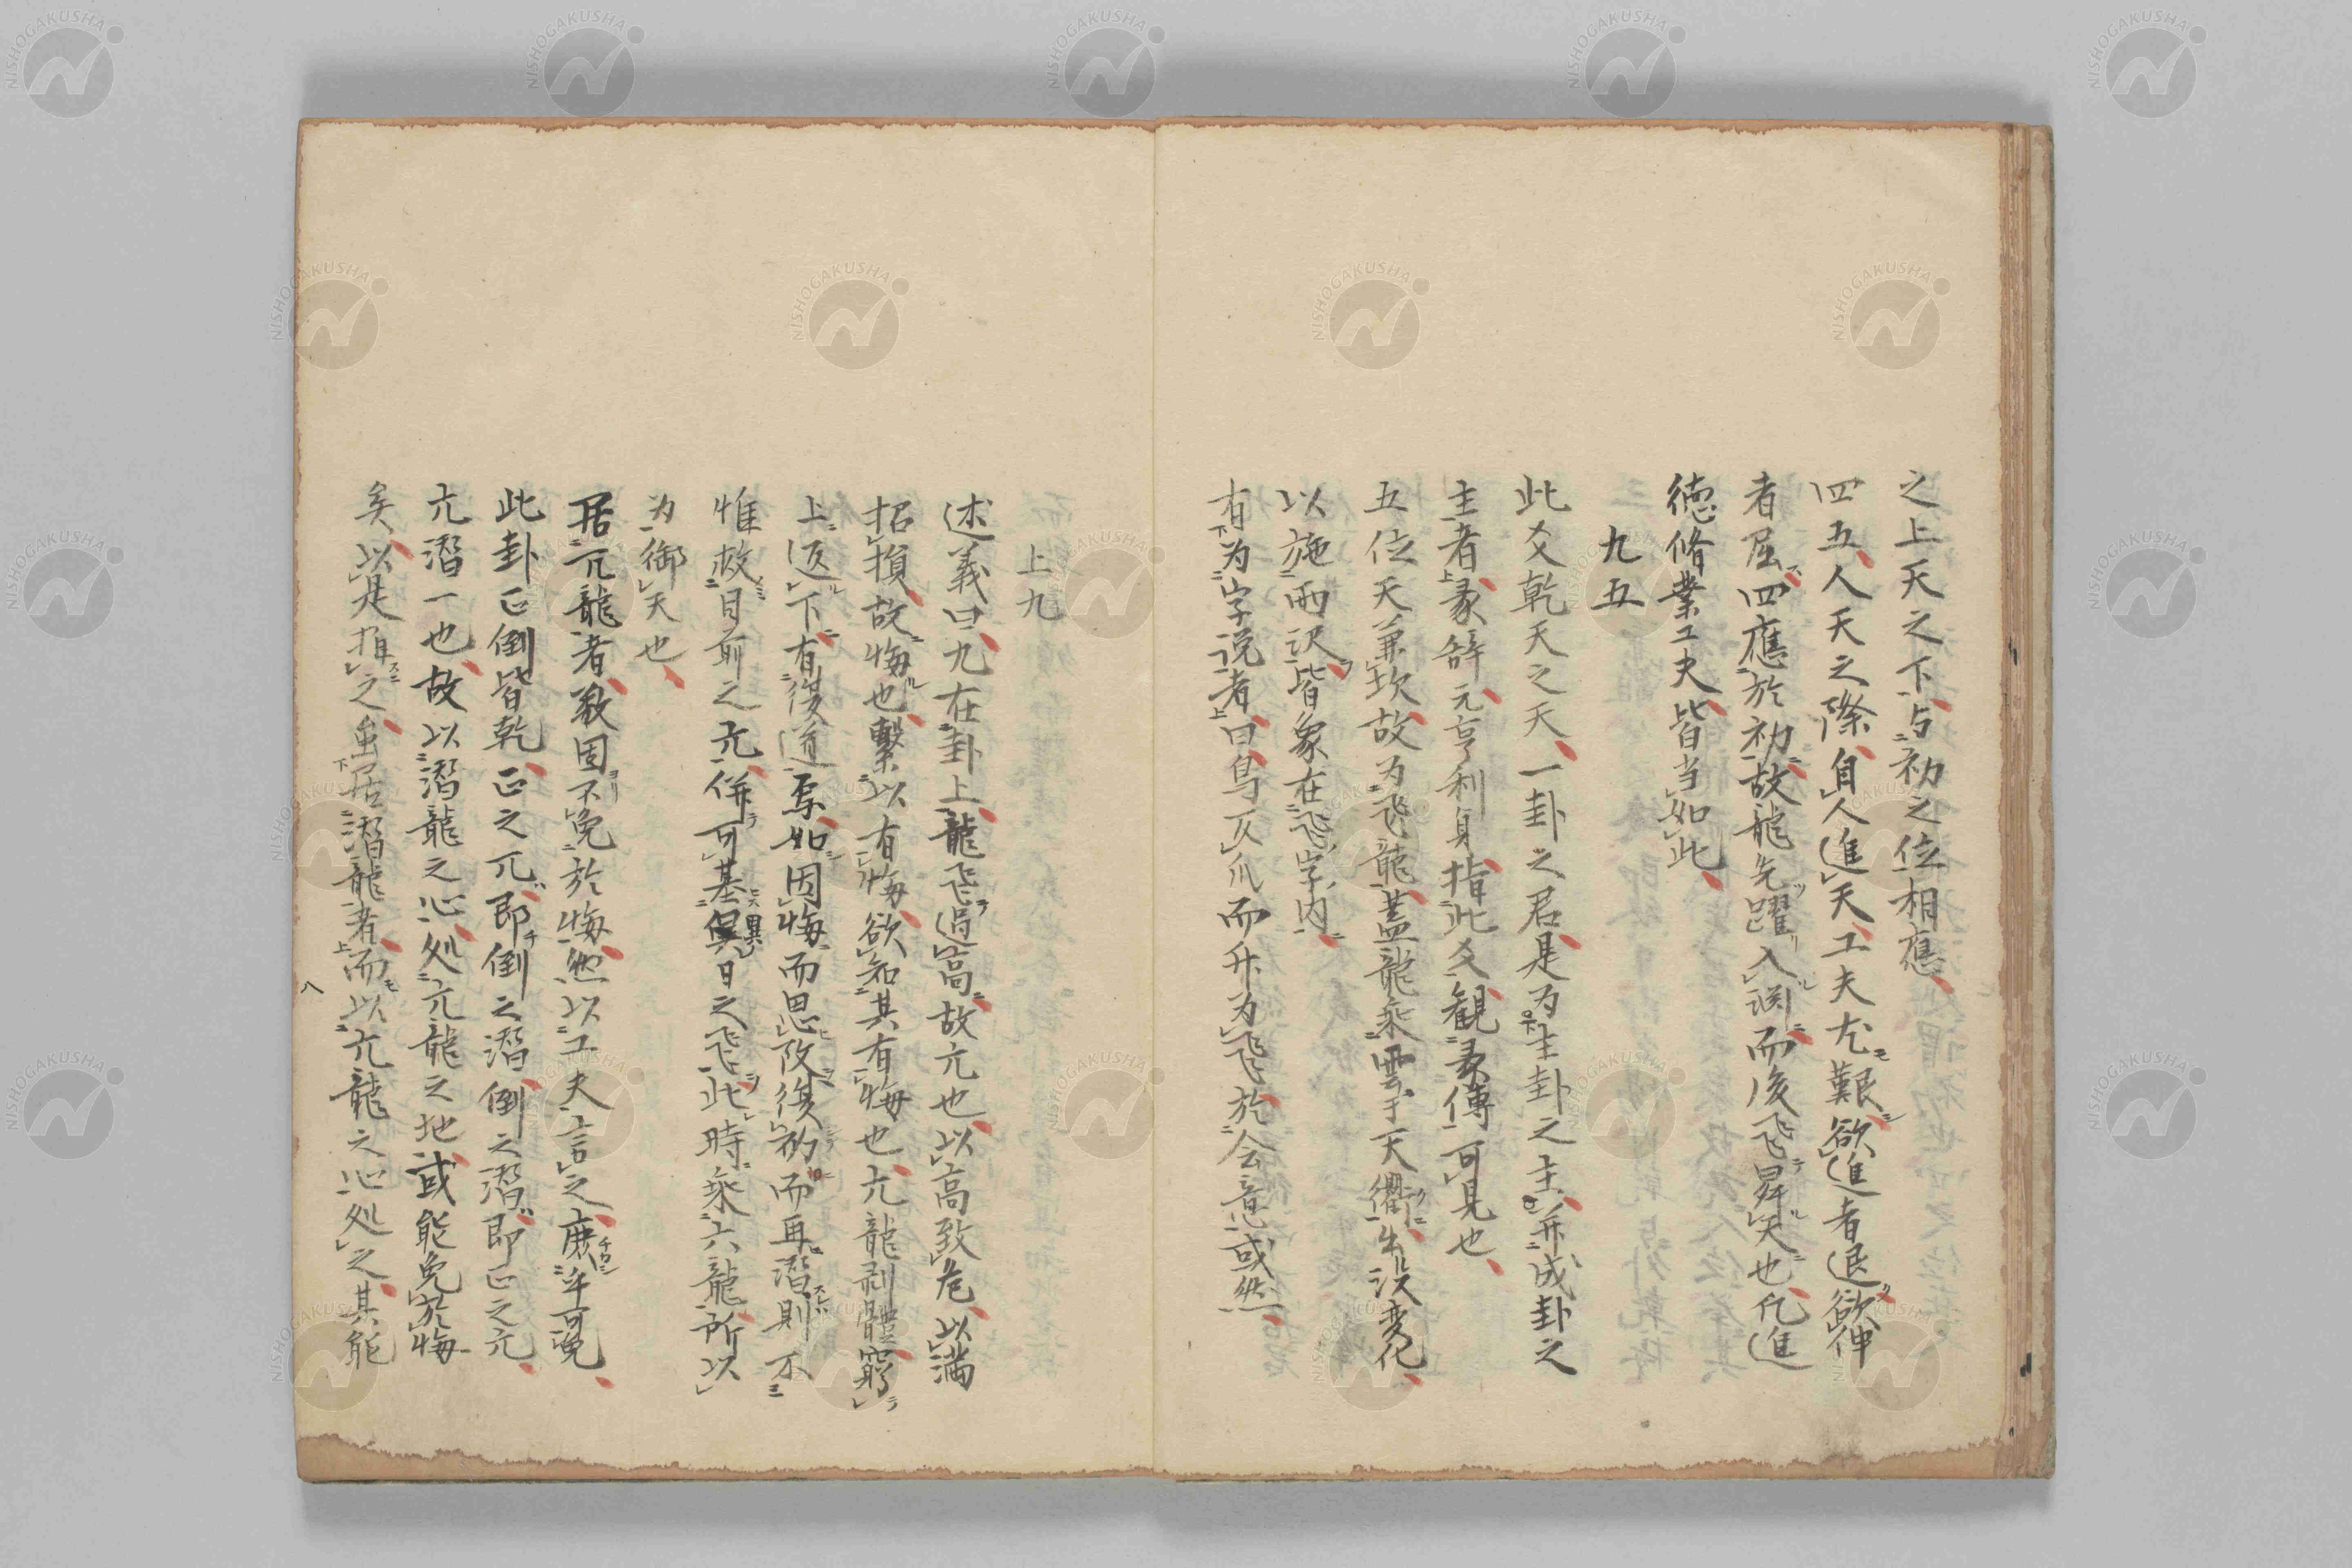 之上天之下与初之位相應
四五人天之際自人進天工夫尤艱欲進者退欲伸
者屈四應於初故龍先躍入淵而後飛昇天也仡進
徳脩業工夫皆当如此
九五
此爻乾天之天一卦之君是为主卦之主并成卦之
主者彖辞元亨利貞指此爻観彖傳可見也
五位天兼坎故为飛龍蓋龍乘雲于天衢出没変化
以施雨沢皆象在飛字内
有为字说者曰鳥爪而升为飛於会意或然
上九
述義曰九在卦上龍飛過高故亢也以高致危以満
招損故悔也繋以有悔欲知其有悔也亢龍剥體窮
上返下有復道焉如因悔而思改復初而再潜則不
惟救目前之亢併可基異日之飛此時乘六龍所以
为御天也
居亢龍者教固不免於悔然以工夫言之庶乎可免
此卦正倒皆乾正之亢即倒之潜倒之潜即正之亢
亢潜一也故以潜龍之心処亢龍之地或能免於悔
矣以是推之虽居潜龍者而以亢龍之心処之其能
八
NISHOGAKUSHA